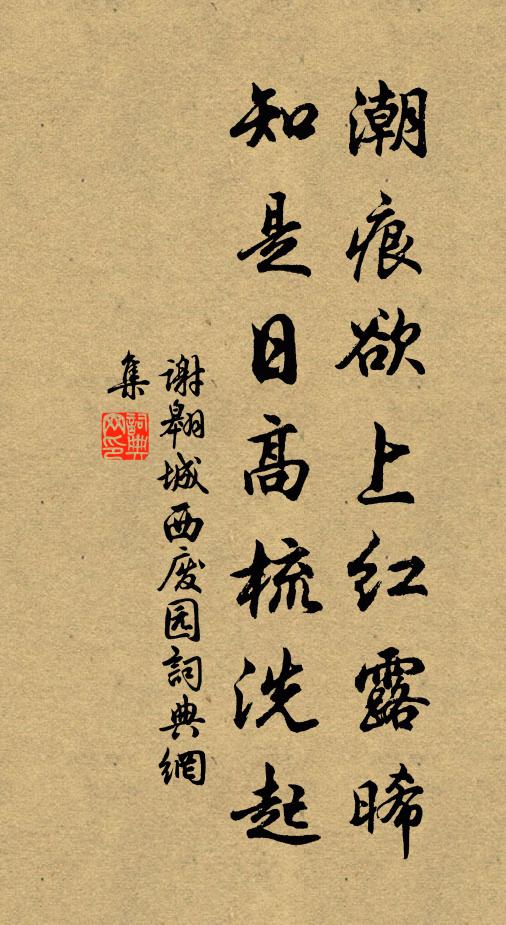 潮痕欲上红露晞
知是日高梳洗起
谢翱城西废园詞典網
集
詞典网印